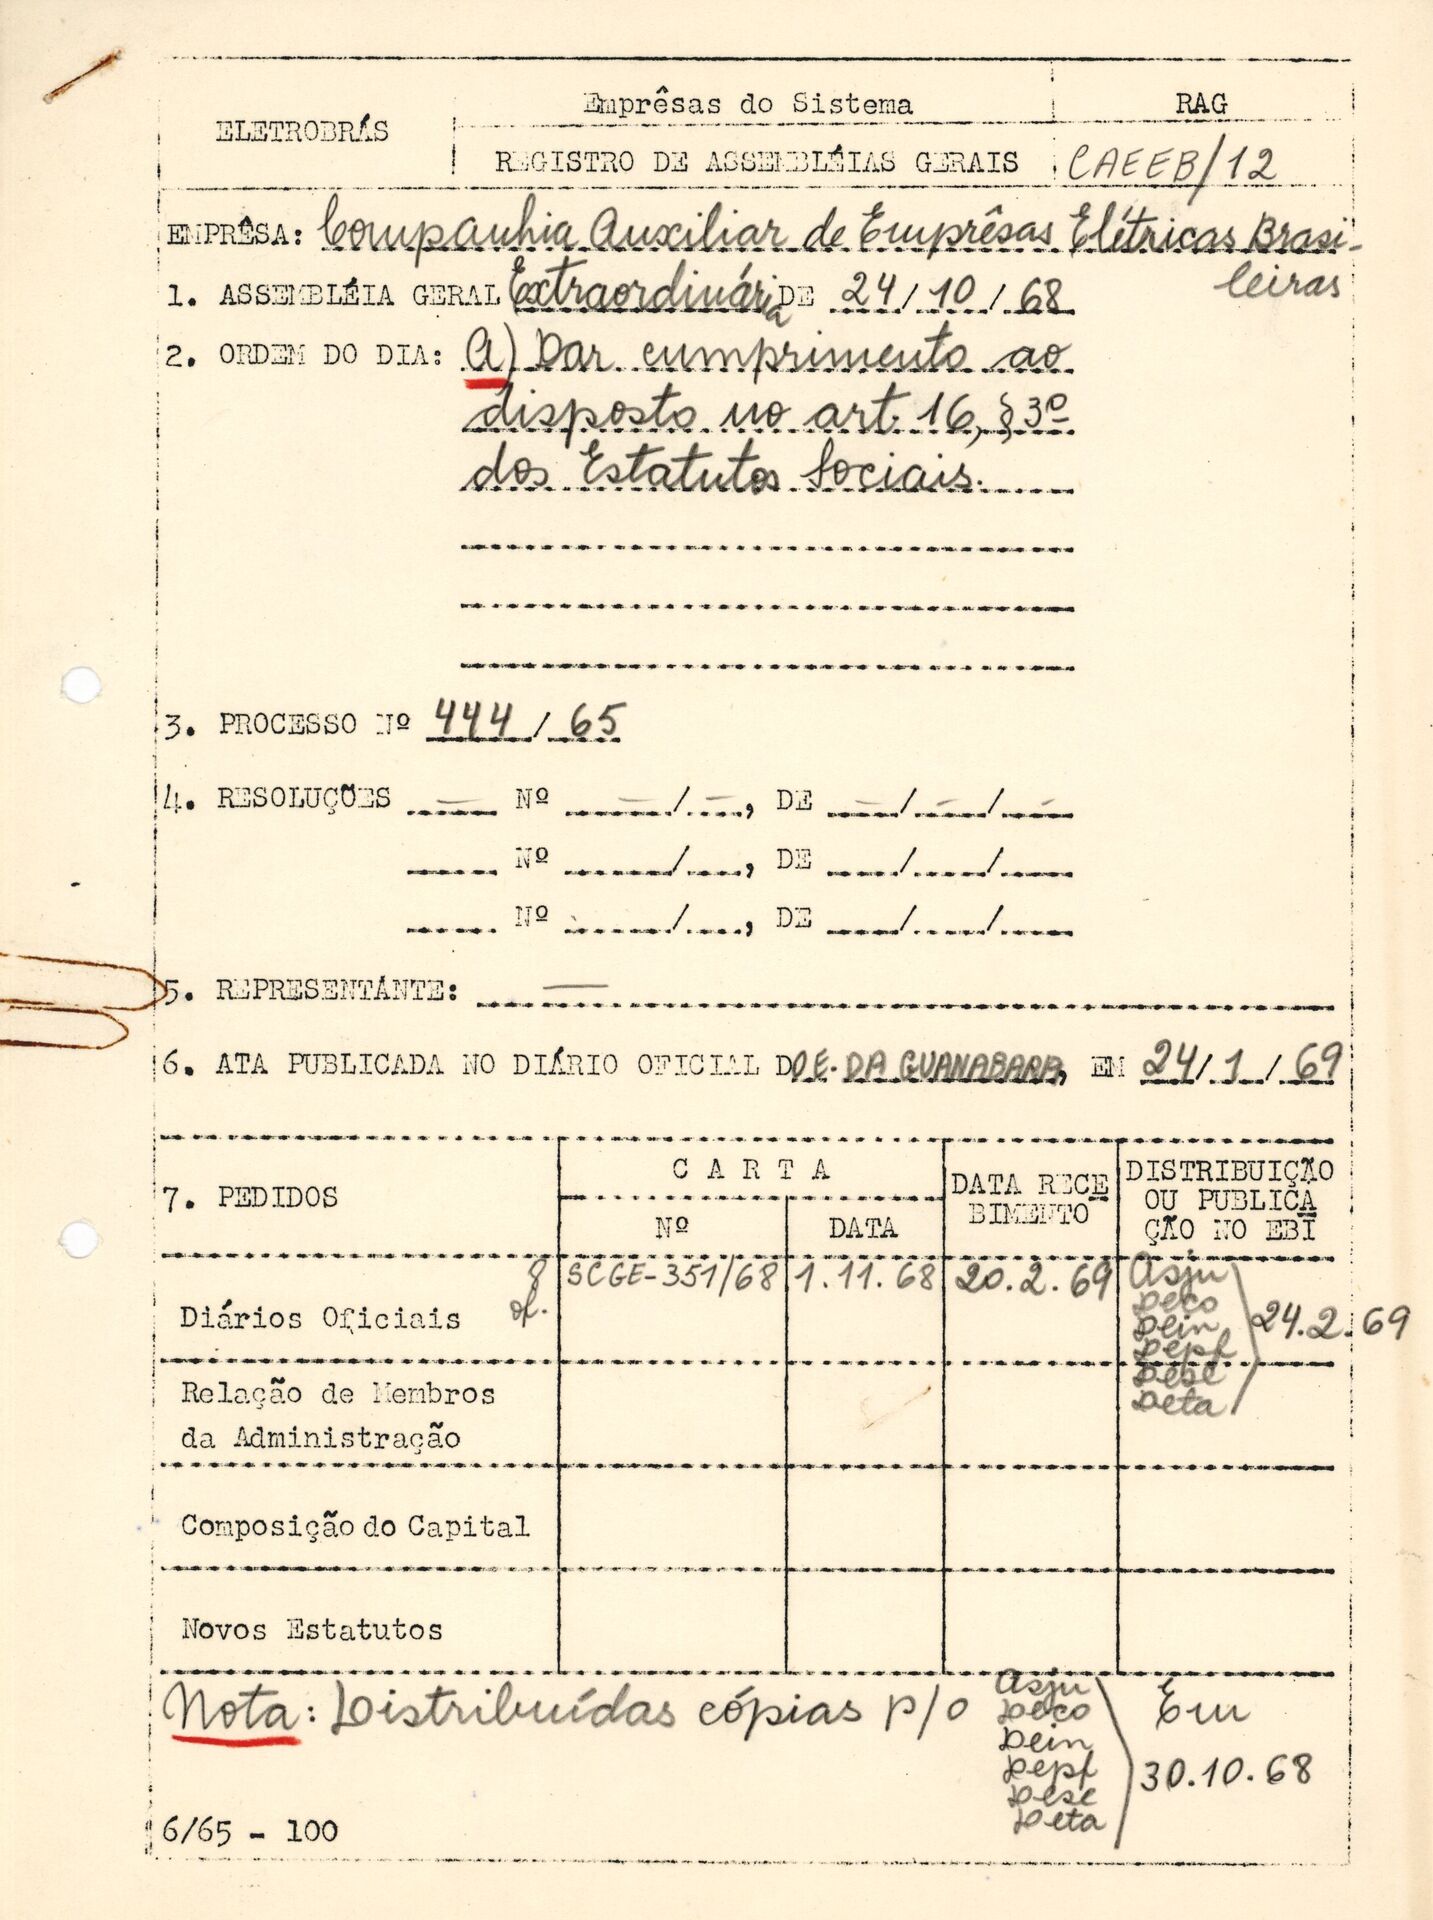 ELETROBRÁS
Emprêsas do Sistema
RAG
REGISTRO DE ASSEMBLÉIAS GERAIS
CAEEB/12
EMPRÊSA: Companhia Auxiliar de Emprêsas Elétricas Brasi-
leiras
1. ASSEMBLÉIA GERAL Extraordinária DE 24/10/68
2. ORDEM DO DIA: A) Dar cumprimento ao
disposto no art. 16, § 3º
dos Estatutos Sociais.
3. PROCESSO Nº 444/65
4. RESOLUÇÕES — Nº —/—, DE —/—/—
Nº /, DE / /
Nº /, DE / /
5. REPRESENTANTE: —
6. ATA PUBLICADA NO DIÁRIO OFICIAL DO E. DA GUANABARA, EM 24/1/69
7. PEDIDOS
CARTA
Nº
DATA
DATA RECE
BIMENTO
DISTRIBUIÇÃO
OU PUBLICA
ÇÃO NO EBI
Diários Oficiais
8
of.
SCGE-351/68
1.11.68
20.2.69
Asju
Deco
Dein
Depf
Dese
Deta
24.2.69
Relação de Membros
da Administração
Composição do Capital
Novos Estatutos
Nota: Distribuídas cópias p/o
Asju
Deco
Dein
Depf
Dese
Deta
Em
30.10.68
6/65 - 100